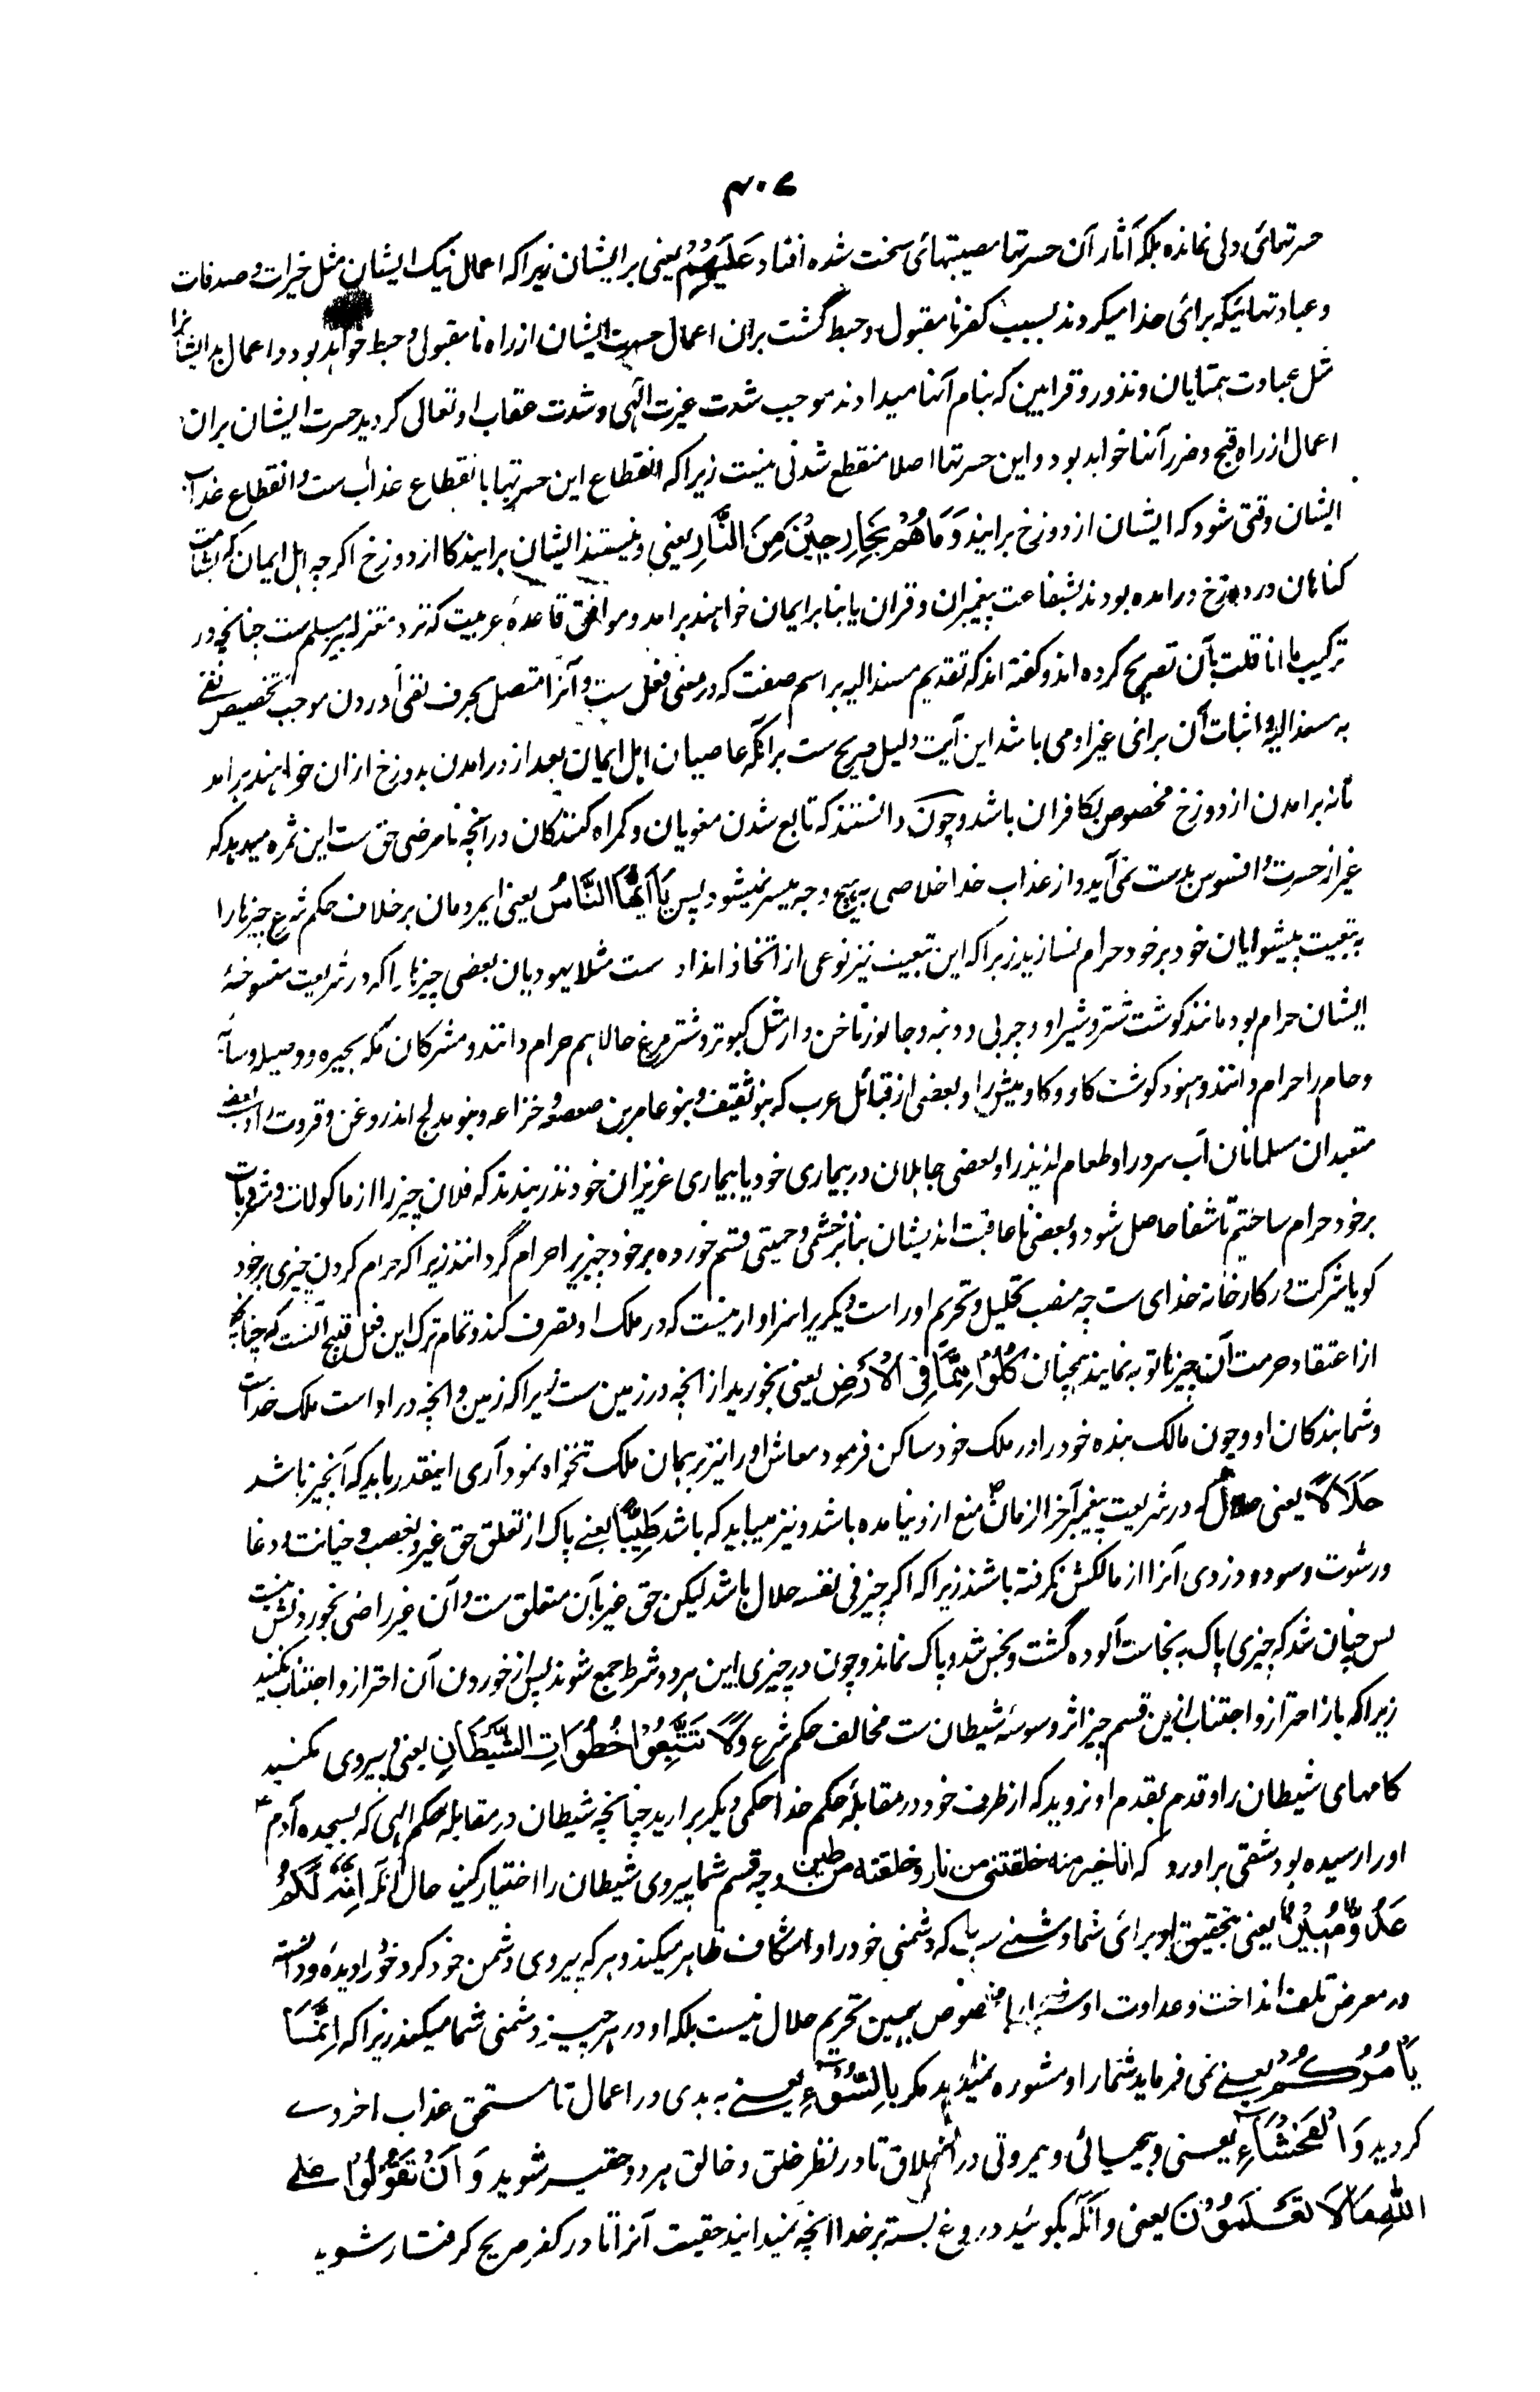 ۴۰۷
حسرتهای دلی نمانده بلکه آثار آن حسرتها مصیبتهائی سخت شده افتاد عَلَيْهِمْ یعنی بر ایشان زیرا که اعمال نیک ایشان مثل خیرات و صدقات
و عبادتهائیکه برائی خدا میکردند بسبب کفر نا مقبول و حبط گشت بر ان اعمال حسرت ایشان از راه نا مقبولی و حبط خواهد بود و اعمال بد ایشانرا
مثل عبادت بهتایان و نذور و قرابین که بنام آنها میدادند موجب شدت غیرت الهی و شدت عقاب او تعالی کردید حسرت ایشان بران
اعمال از راه قبح و ضرر آنها خواهد بود و این حسرتها اصلا منقطع شدنی نیست زیرا که انقطاع این حسرتها با نقطاع عذاب ست و انقطاع عذاب
ایشان وقتی شود که ایشان از دوزخ برایند وَمَا هُمْ بِخَارِجِيْنَ مِنَ النَّارِ یعنی و نیستند ایشان برایندکا از دوزخ اکرچه اهل ایمان که بشامت
کناهان در دوزخ درامده بودند بشفاعت پیغمبران و قران یا بنا بر ایمان خواهند برامد و موافق قاعدهٔ عربیت که نزد معتزله نیز مسلم ست چنانچه در
ترکیب ما انا قلت بآن تصریح کرده اند و کفته اند که تقدیم مسند الیه بر اسم صفت که در معنی فعل ست و آنرا متصل بحرف نفی آوردن موجب تخصیص نفی
به مسند الیه و اثبات آن برائی غیر او می باشد این آیت دلیل صریح ست برانکه عاصیان اهل ایمان بعد از درامدن بدوزخ ازان خواهند برامد
تا نه برامدن از دوزخ مخصوص بکافران باشد و چون دانستند که تابع شدن مغویان و کمراه کنندکان در آنچه نامرضی حق ست این ثمره میدهد که
غیر از حسرت و افسوس بدست نمی آید و از عذاب خدا خلاصی به هیچ وجه میسر نمیشود پس يَا اَيُّهَا النَّاسُ یعنی ایمردمان بر خلاف حکم شرع چیزها را
به تبعیت پیشوایان خود بر خود حرام نسازید زیرا که این تبعیت نیز نوعی از اتخاذ انداد ست مثلا یهودیان بعضی چیزها را که در شریعت منسوخهٔ
ایشان حرام بود مانند کوشت شتر و شیر او و چربی و دنبه و جانور ناخن دار مثل کبوتر و شتر مرغ حالا هم حرام دانند و مشرکان مکه بحیره و وصیله و سائبه
و حام را حرام دانند و هنود کوشت کاو و کاومیش را و بعضی از قبائل عرب که بنو ثقیف و بنو عامر بن صعصعه و خزاعه و بنو مدلج اند روغن و قروت را و بعضی
متعبدان مسلمانان آب سرد را و طعام لذیذ را و بعضی جاهلان در بیماری خود یا بیماری عزیزان خود نذر بندند که فلان چیز را از ماکولات و مشروبات
بر خود حرام ساختیم تا شفا حاصل شود و بعضی نا عاقبت اندیشان بنا بر خشمی و حمیتی قسم خورده بر خود چیزیرا حرام گردانند زیرا که حرام کردن چیزی بر خود
کویا شرکت در کارخانه خدای ست چه منصب تحلیل و تحریم او راست دیکریرا سزاوار نیست که در ملک او تصرف کند و تمام ترک این فعل قبیح آنست که چنانچه
از اعتقاد حرمت آن چیزها توبه نمایند همچنان كُلُوْا مِمَّا فِى الْاَرْضِ یعنی بخورید از انچه در زمین ست زیرا که زمین و انچه دراوست ملک خداست
و شما بندکان او و چون مالک بنده خود را در ملک خود ساکن فرمود معاش او را نیز بر همان ملک تنخواه نمود آری اینقدر باید که آنچیز باشد
حَلَالًا یعنی حلال که در شریعت پیغمبر آخر الزمان منع ازو نیامده باشد و نیز میباید که باشد طَيِّبًا یعنے پاک از تعلق حق غیر و بغصب و خیانت و دغا
و رشوت و سود و دزدی آنرا از مالکش نگرفته باشند زیرا که اکر چیز فی نفسه حلال باشد لیکن حق غیر بآن متعلق ست و آن غیر راضی بخوردنش نیست
پس چنان شد که چیزی پاک به نجاست آلوده گشت و نجس شد و پاک نماند و چون در چیزی این هر دو شرط جمع شوند پس از خوردن آن احتراز و اجتناب نکنید
زیرا که باز احتراز و اجتناب از ین قسم چیز اثر وسوسهٔ شیطان ست مخالف حکم شرع وَلَا تَتَّبِعُوْا خُطُوَاتِ الشَّيْطَانِ یعنی و پیروی مکنید
کامهای شیطان را و قدم بقدم او نروید که از طرف خود در مقابلهٔ حکم خدا حکمی دیکر برارید چنانچه شیطان در مقابلهٔ حکم الهی که بسجده آدم ؑ
او را رسیده بود شقی براورد که انا خیر منه خلقتنی من نار و خلقته من طین و چه قسم شما پیروی شیطان را اختیار کنید حال آنکه اِنَّهٗ لَكُمْ
عَدُوٌّ مُّبِيْنٌ یعنی بتحقیق او برائی شما دشمنے ست که دشمنی خود را واشکاف ظاهر میکند و هر که پیروی دشمن خود کرد خود را دیده و دانسته
در معرض تلف انداخت و عداوت او مخصوص بهمین تحریم حلال نیست بلکه او در هر چیز دشمنی شما میکند زیرا که اِنَّمَا
يَاْمُرُكُمْ یعنے نمی فرماید شما را و مشوره نمیدهد مکر بِالسُّوْٓءِ یعنے به بدی در اعمال تا مستحق عذاب اخروے
کردید وَالْفَحْشَآءِ یعنی و بیحیائی و بیمروتی در اخلاق تا در نظر خلق و خالق هر دو حقیر شوید وَاَنْ تَقُوْلُوْا عَلَى
اللّٰهِ مَا لَا تَعْلَمُوْنَ یعنی و آنکه بکوئید دروغ بسته بر خدا انچه نمیدانید حقیقت آنرا تا در کفر صریح کرفتار شوید